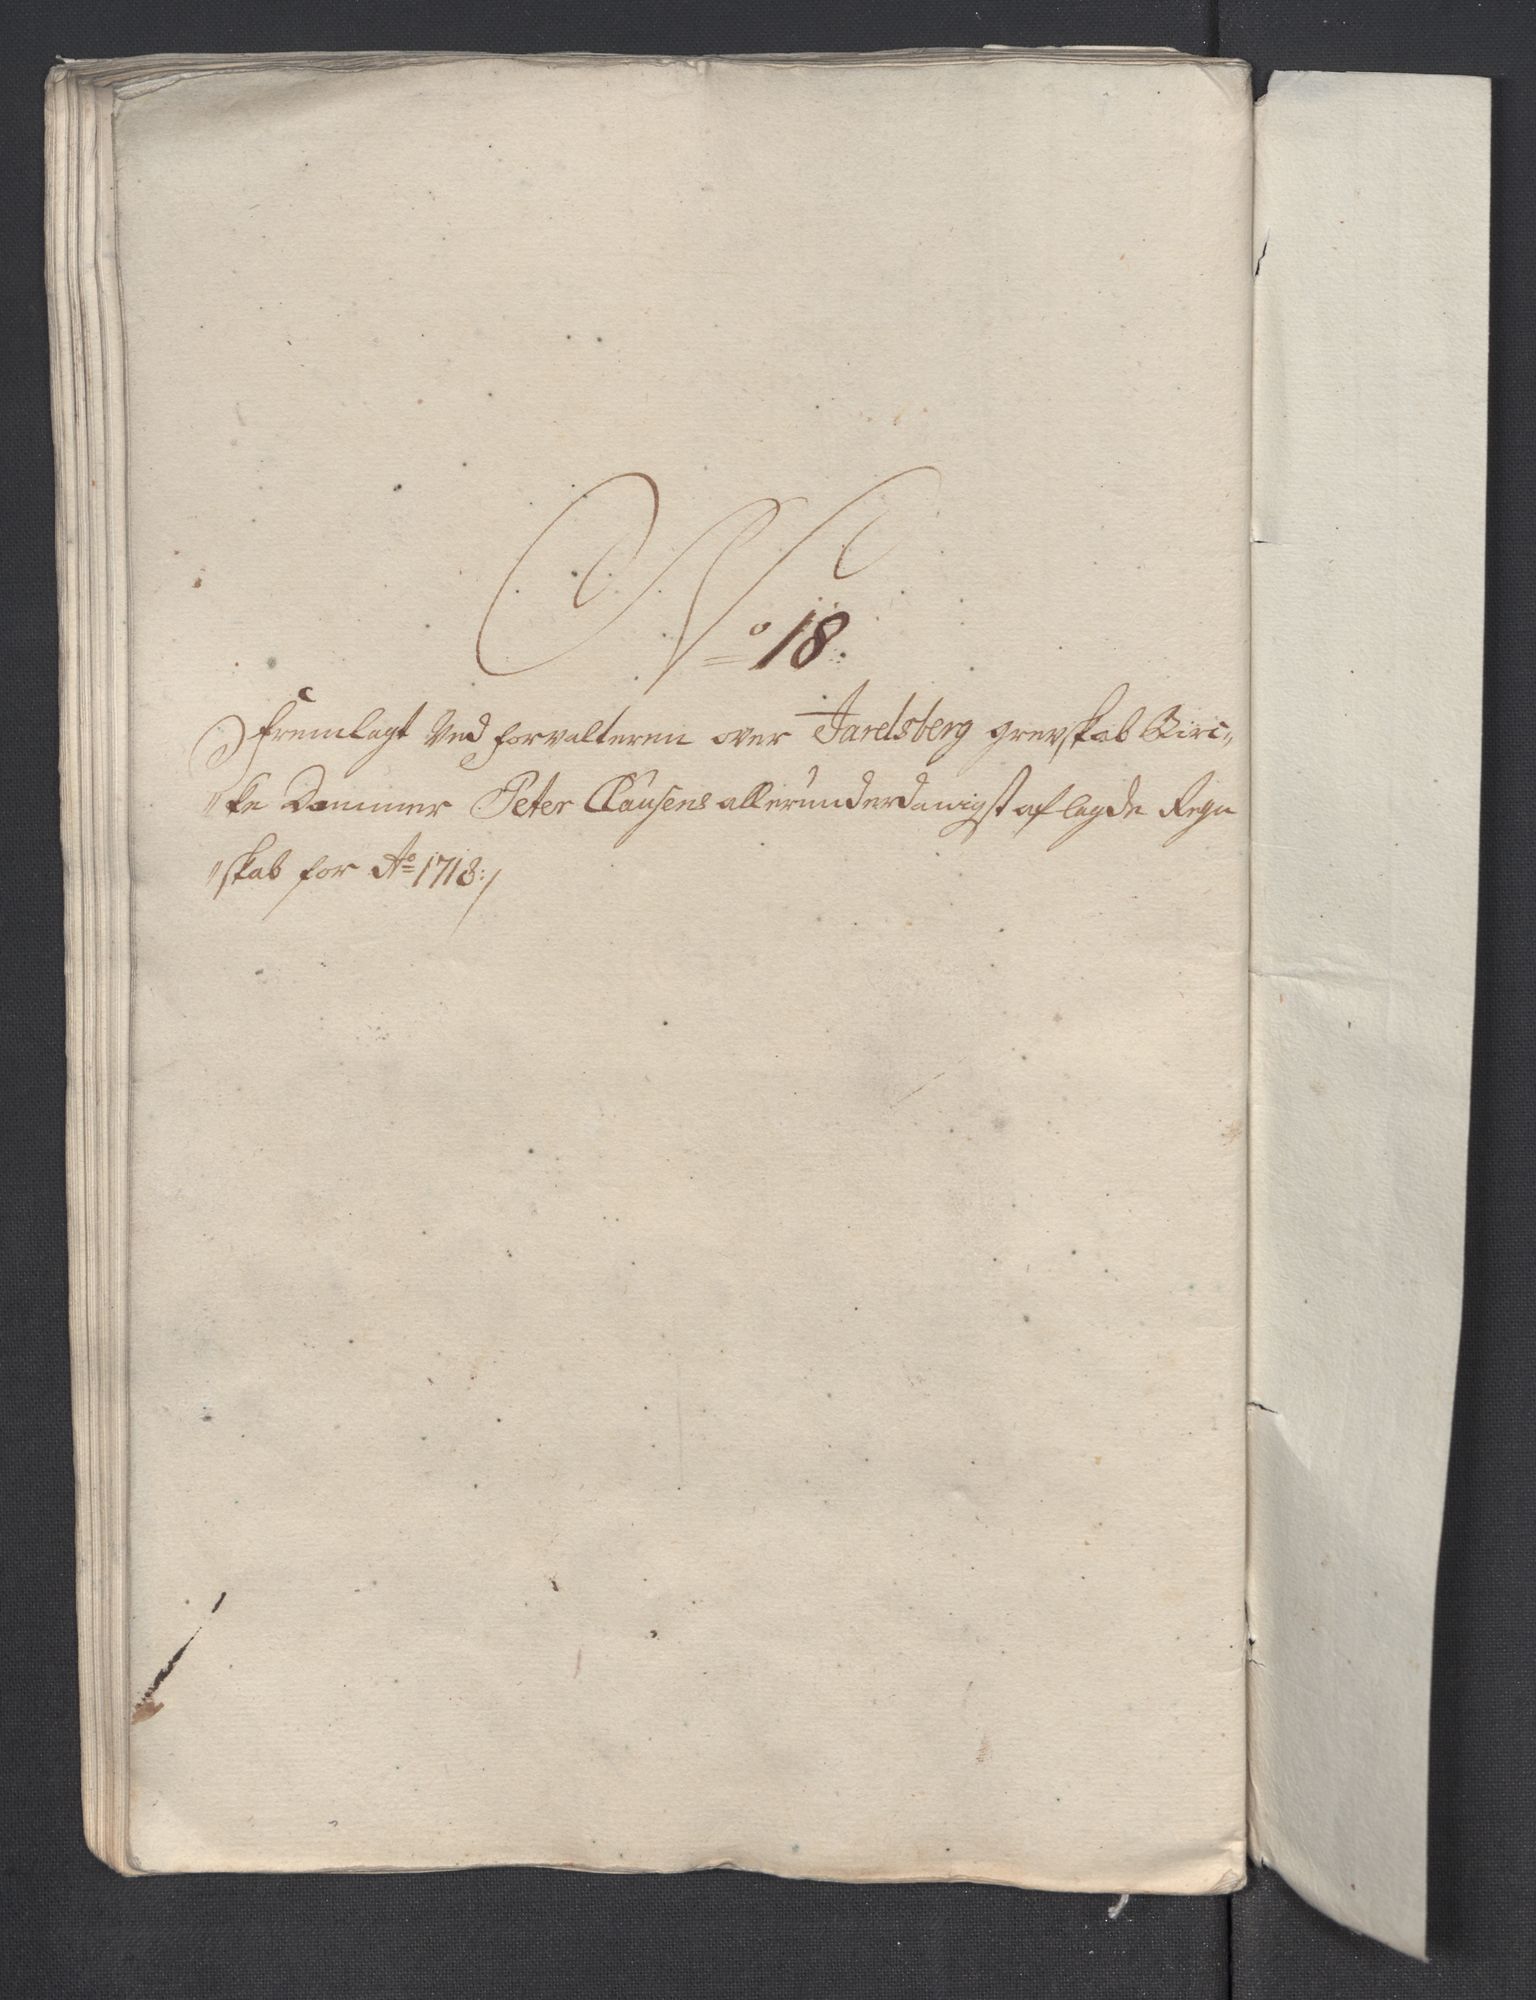 No 18.
Fremlagt Ved forvalteren over Jarelsberg grevskab Birc„
„ke Dommer Peter Clausens allerunderdanigst aflagde Regn
„skab for Ao 1718:/